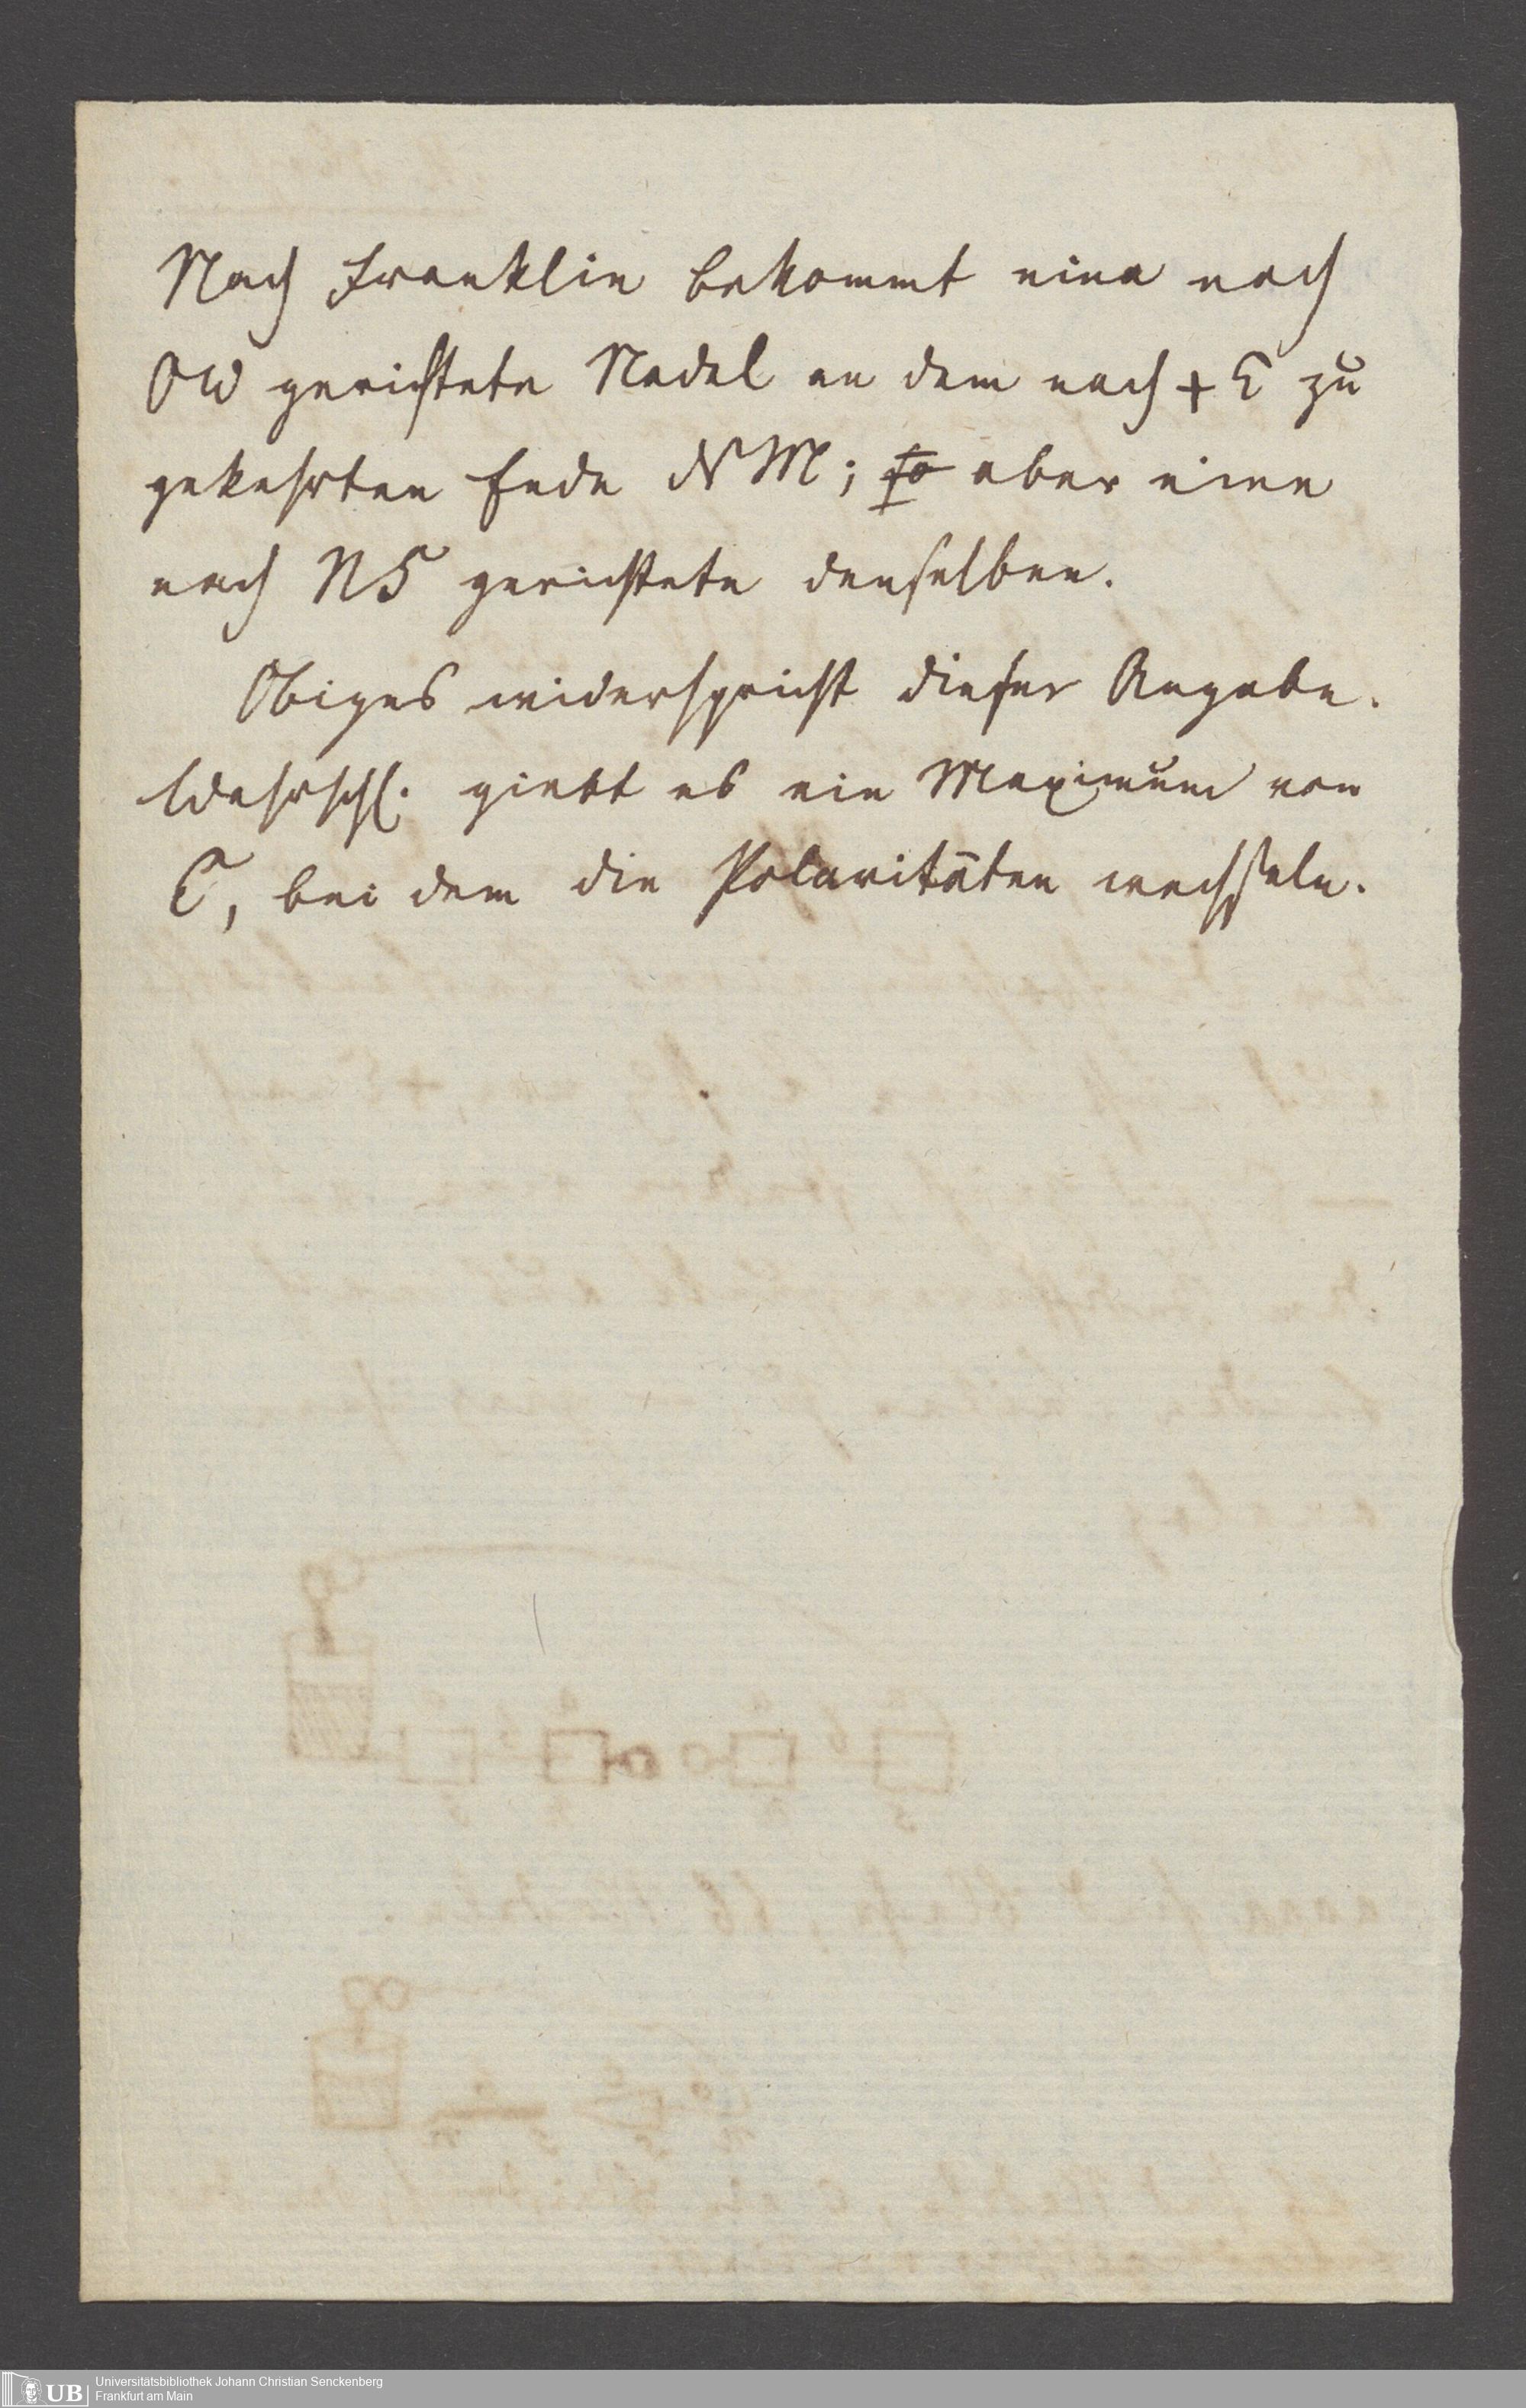 Nach Franklin bekommt eine nach
OW gerichtete Nadel an dem nach + E zu
gekehrten Ende NM; so aber eine
nach NS gerichtete denselben.
Obiges widerspricht dieser Angabe.
Wahrschl. giebt es ein Maximum von
E, bei dem die Polaritäten wechseln.
UB
Universitätsbibliothek Johann Christian Senckenberg
Frankfurt am Main